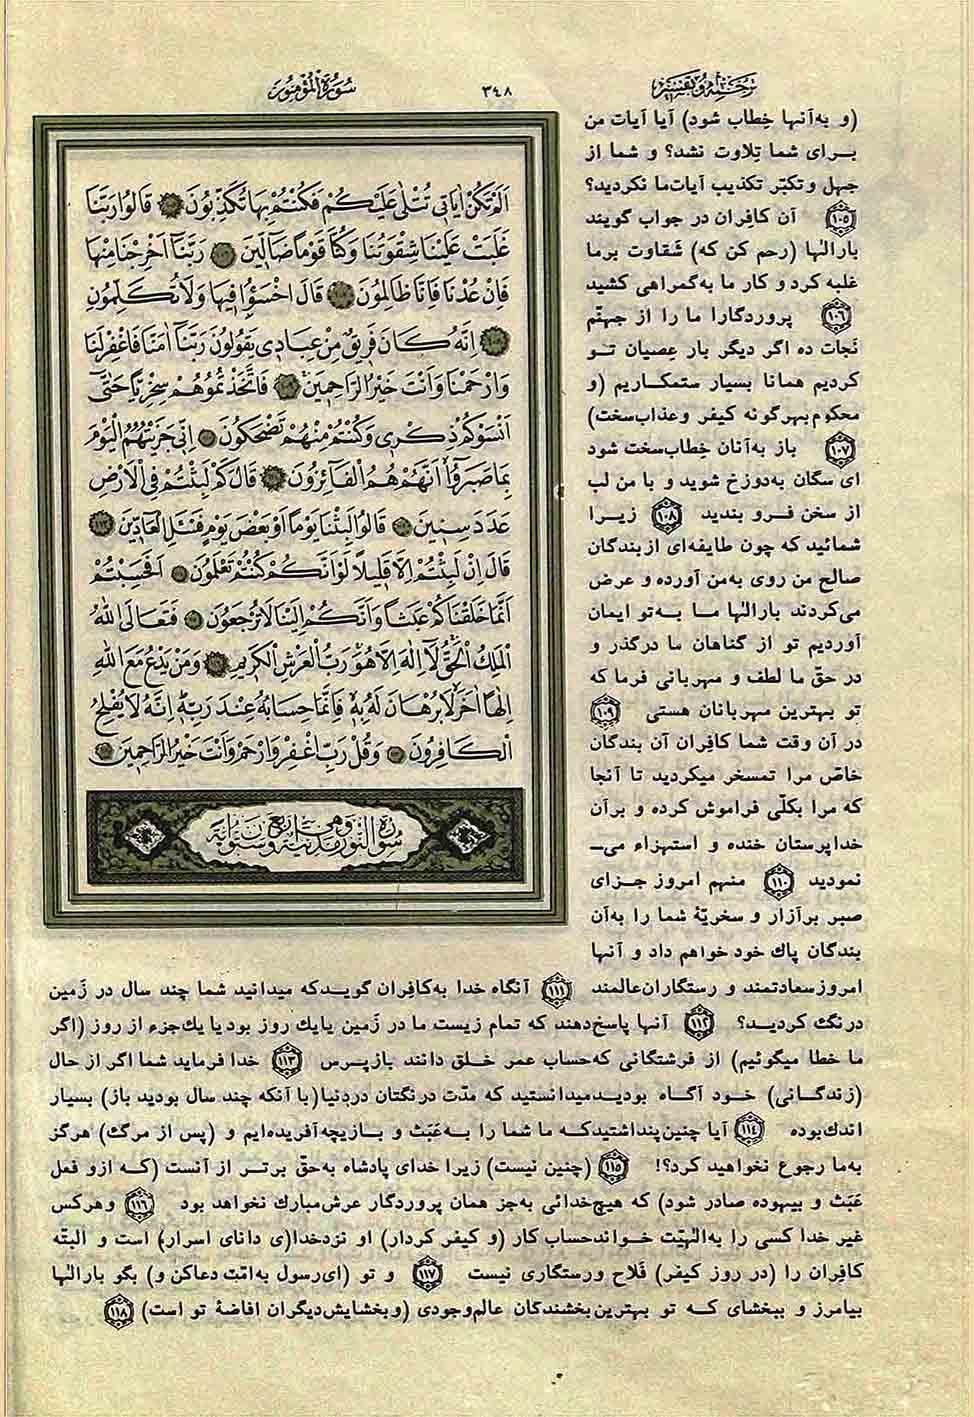 ترجمه و تفسیر
۳۴۸
سورة المؤمنون
اَلَمْ تَكُنْ اٰيَاتٖى تُتْلٰى عَلَيْكُمْ فَكُنْتُمْ بِهَا تُكَذِّبُونَ ۱۰۵ قَالُوا رَبَّنَا
غَلَبَتْ عَلَيْنَا شِقْوَتُنَا وَكُنَّا قَوْمًا ضَالّٖينَ ۱۰۶ رَبَّنَا اَخْرِجْنَا مِنْهَا
فَاِنْ عُدْنَا فَاِنَّا ظَالِمُونَ ۱۰۷ قَالَ اخْسَؤُا فٖيهَا وَلَا تُكَلِّمُونِ
۱۰۸ اِنَّهُ كَانَ فَرٖيقٌ مِنْ عِبَادٖى يَقُولُونَ رَبَّنَا اٰمَنَّا فَاغْفِرْ لَنَا
وَارْحَمْنَا وَاَنْتَ خَيْرُ الرَّاحِمٖينَ ۱۰۹ فَاتَّخَذْتُمُوهُمْ سِخْرِيًّا حَتّٰٓى
اَنْسَوْكُمْ ذِكْرٖى وَكُنْتُمْ مِنْهُمْ تَضْحَكُونَ ۱۱۰ اِنّٖى جَزَيْتُهُمُ الْيَوْمَ
بِمَا صَبَرُٓوا اَنَّهُمْ هُمُ الْفَٓائِزُونَ ۱۱۱ قَالَ كَمْ لَبِثْتُمْ فِى الْاَرْضِ
عَدَدَ سِنٖينَ ۱۱۲ قَالُوا لَبِثْنَا يَوْمًا اَوْ بَعْضَ يَوْمٍ فَسْـَٔلِ الْعَٓادّٖينَ ۱۱۳
قَالَ اِنْ لَبِثْتُمْ اِلَّا قَلٖيلًا لَوْ اَنَّكُمْ كُنْتُمْ تَعْلَمُونَ ۱۱۴ اَفَحَسِبْتُمْ
اَنَّمَا خَلَقْنَاكُمْ عَبَثًا وَاَنَّكُمْ اِلَيْنَا لَا تُرْجَعُونَ ۱۱۵ فَتَعَالَى اللّٰهُ
الْمَلِكُ الْحَقُّ لَٓا اِلٰهَ اِلَّا هُوَ رَبُّ الْعَرْشِ الْكَرٖيمِ ۱۱۶ وَمَنْ يَدْعُ مَعَ اللّٰهِ
اِلٰهًا اٰخَرَ لَا بُرْهَانَ لَهُ بِهٖ فَاِنَّمَا حِسَابُهُ عِنْدَ رَبِّهٖ اِنَّهُ لَا يُفْلِحُ
الْكَافِرُونَ ۱۱۷ وَقُلْ رَبِّ اغْفِرْ وَارْحَمْ وَاَنْتَ خَيْرُ الرَّاحِمٖينَ ۱۱۸
سورة النور مدنية وهى اربع وستون اية
(و به‌آنها خِطاب شود) آیا آیات من
برای شما تِلاوت نشد؟ و شما از
جهل وتکبّر تکذیب آیات‌ما نکردید؟
۱۰۵ آن کافِران در جواب گویند
بارالها (رحم کن که) شَقاوت برما
غلبه کرد و کار ما به‌گمراهی کشید
۱۰۶ پروردگارا ما را از جهنّم
نَجات ده اگر دیگر بار عِصیان تو
کردیم همانا بسیار ستمکاریم (و
محکوم‌بهرگونه کیفر وعذاب‌سخت)
۱۰۷ باز به‌آنان خِطاب‌سخت شود
ای سگان به‌دوزخ شوید و با من لب
از سخن فرو بندید ۱۰۸ زیرا
شمائید که چون طایفه‌ای ازبندگان
صالح من روی به‌من آورده و عرض
می‌کردند بارالها ما به‌تو ایمان
آوردیم تو از گناهان ما درگذر و
در حقّ ما لطف و مهربانی فرما که
تو بهترین مهربانان هستی ۱۰۹
در آن وقت شما کافِران آن بندگان
خاصّ مرا تمسخر میکردید تا آنجا
که مرا بکلّی فراموش کرده و برآن
خداپرستان خنده و استهزاء می‌ـ
نمودید ۱۱۰ منهم امروز جزای
صبر برآزار و سخریّهٔ شما را به‌آن
بندگان پاك خود خواهم داد و آنها
امروزسعادتمند و رستگاران‌عالمند ۱۱۱ آنگاه خدا به‌کافِران گویدکه میدانید شما چند سال در زَمین
درنگ کردید؟ ۱۱۲ آنها پاسخ‌دهند که تمام زیست ما در زَمین یایك روز بود یا یك‌جزء از روز (اگر
ما خطا میگوئیم) از فرشتگانی که‌حساب عمر خلق دانند بازپرس ۱۱۳ خدا فرماید شما اگر از حال
(زندگانی) خود آگاه بودیدمیدانستید که مدّت درنگتان دردنیا(با آنکه چند سال بودید باز) بسیار
اندك‌بوده ۱۱۴ آیا چنین‌پنداشتیدکه ما شما را به‌عَبَث و بازیچه‌آفریده‌ایم و (پس از مرگ) هرگز
به‌ما رجوع نخواهید کرد؟! ۱۱۵ (چنین نیست) زیرا خدای پادشاه به‌حقّ برتر از آنست (که ازو فعل
عَبَث و بیهوده صادر شود) که هیچ‌خدائی به‌جز همان پروردگار عرش‌مبارك نخواهد بود ۱۱۶ وهرکس
غیر خدا کسی را به‌الهیّت خواندحساب کار (و کیفر کردار) او نزدخدا(ی دانای اسرار) است و البتّه
کافِران را (در روز کیفر) فَلاح ورستگاری نیست ۱۱۷ و تو (ای‌رسول به‌امّت دعاکن و) بگو بارالها
بیامرز و ببخشای که تو بهترین‌بخشندگان عالم‌وجودی (وبخشایش‌دیگران افاضهٔ تو است) ۱۱۸